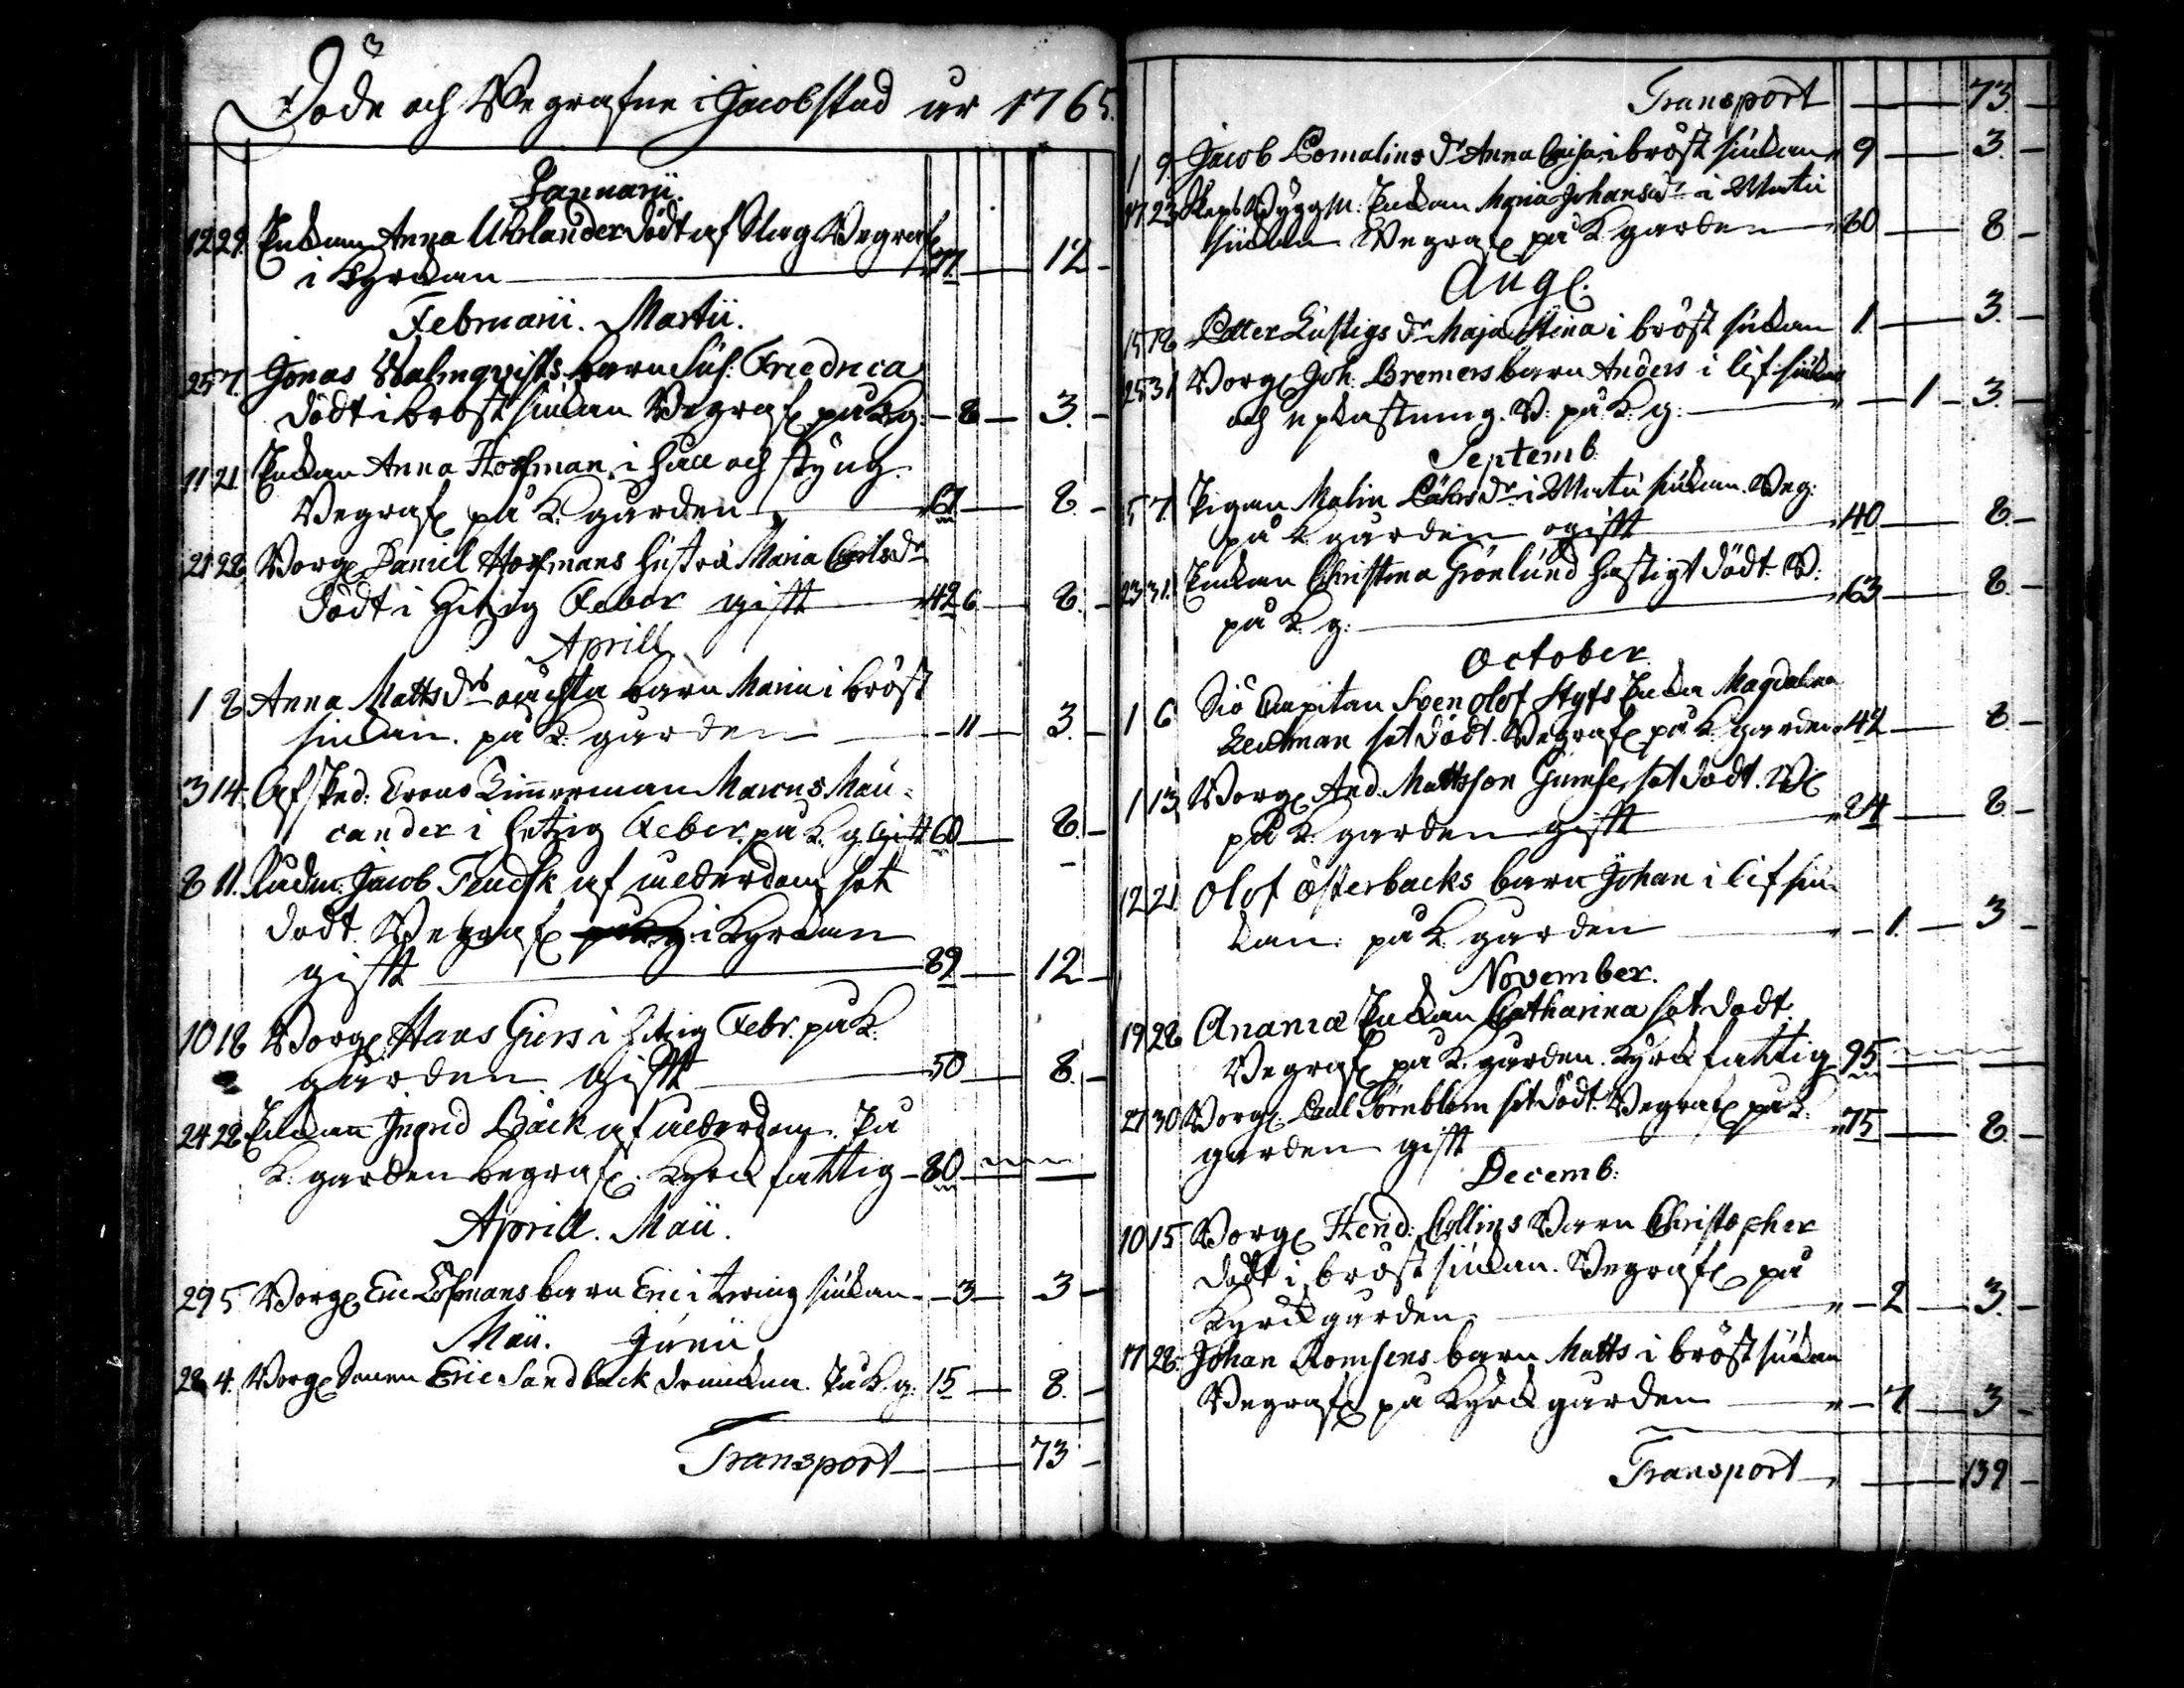 Döde och Begrafne i Jacobstad år 1765.
Januarii.
12 29. Enkian Anna Uhlander Dödt af Slag Begraf:
i Kyrckan 77 — 12 –
Februarii. Martii.
25 7. Jonas Malmqvists barn Sus: Friedrica
dödt i bröst siukan Begraf: på K.g: – 8 — 3. –
11 21. Enkan Anna Hoffman i håll och styng
Begraf: på K. gården 67 — 8. –
21 28. Borg: Daniel Hoffmans hustru Maria Carlsdr
Dödt i Hitzig Feber gift 42 6 — 8. –
Aprill
1 8 Anna Matts Drs oächta barn Maria i bröst
siukan. på K. gården – 11 — 3. –
3 14. Afsked: Crono Timmerman Marcus Mau-
cander i hetzig Feber. på K. g. Gift 60 — 8. –
8 11. Rådm: Jacob Feudsk af ålderdom sot
dödt. Begraf: i Kyrckan
gift 89 — 12 –
10 18 Borg: Hans Giers i hitzig Febr. på K.
gården gift 50 — 8. –
24 28 Enkan Ingrid Bäck af ålderdom. På
K: gården begraf: Kyrck fattig – 80 —
Aprill. Maii.
29 5 Borg: Eric Löfmans barn Eric i twing siukan – 3 — 3 –
Maii. Junii
28 4. Borg: Sonen Eric Sandback drunknat. På K. g: 15 — 8. –
Transport — 73 –
Transport — 73. –
1 9. Jacob Comalins Dr Anna Caisa i bröst siukan 9 — 3. –
17 23 Skeps Bygg M: Enkan Maria Johansdr i Mattu
siukan Begraf: på K garden 80 — 8. –
Aug:
15 18 Petter Lustigs Dr Maja Stina i bröst siukan 1 — 3. –
25 31 Borg: Joh: Bremers barn Anders i lif siukan
och upkastning. B: på K: g: — 1 – 3. –
Septemb:
5 7. Pigan Malin Dr i Mattu siukan. Beg:
på K gården ogift 40 — 8. –
23 31. Enkan Christina Grönlund hastigt dödt. B:
på K. g: 63 — 8. –
October.
1 6 Siö Capitan Sven Olof Styfs Enka Magdalena
Leutman sot död. Begraf: på K. garden 42 — 8. –
1 13 Borg: And. Mattsson Gumse, sot dödt. B:
på K. garden gift 84 — 8. –
12 21 Olof Österbacks barn Johan i lif siu-
kan: på K. gården – 1. — 3 –
November.
19 28 Ananiæ Enkan Catharina sot dödt.
Begraf: på K. gården. Kyrck fattig 95
27 30 Borg: Paul Törnblom sot dödt. Begraf: på K.
garden gift 75 — 8. –
Decemb:
10 15 Borg: Hend: Collins Barn Christopher
dödt i bröst siukan. Begraf: på
Kyrckgården – 2 — 3. –
17 28. Johan Romsens barn Matts i bröst siukan
Begraf: på Kyrck gården – 7 — 3 –
Transport — 139 –